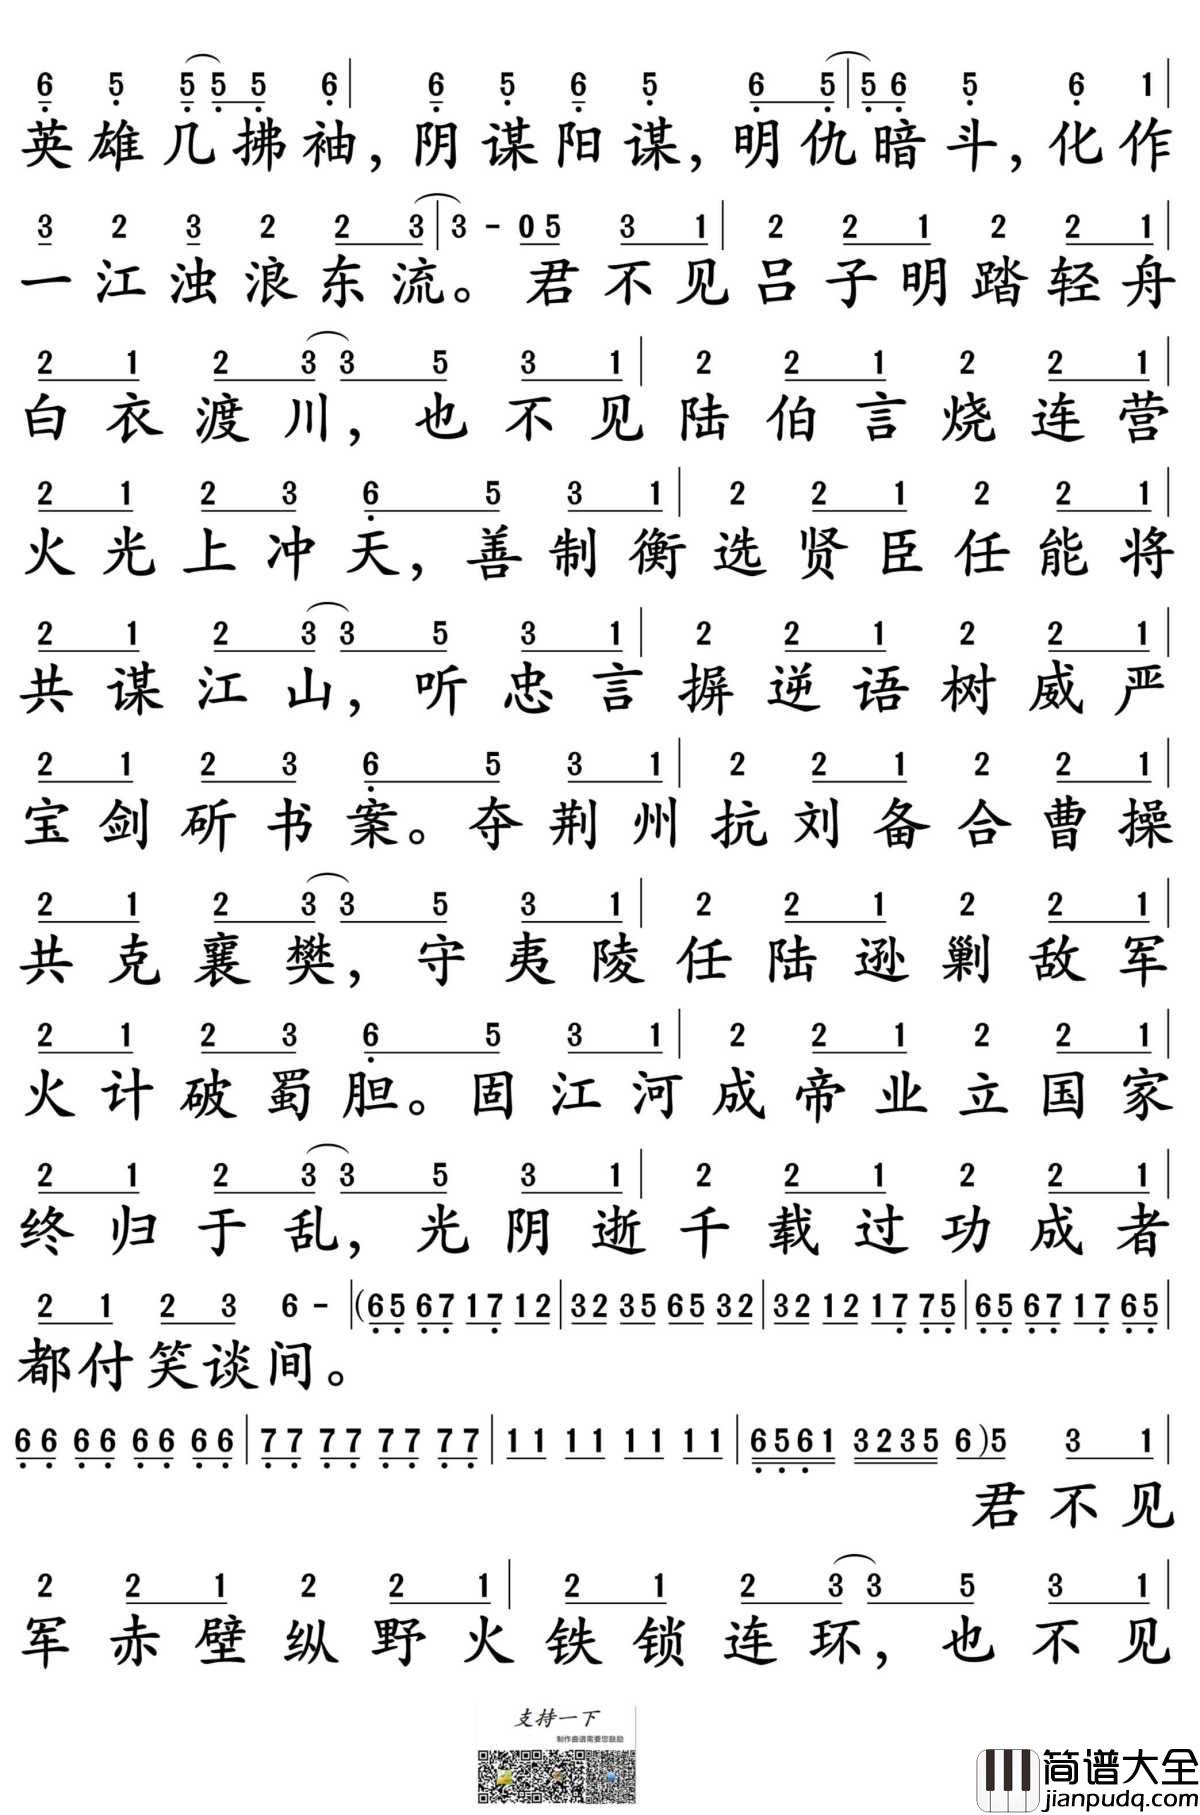 6 5 5 5 5 6 | 6 5 6 5 6 5 | 5 6 5 6 1 |
英雄几拂袖，阴谋阳谋，明仇暗斗，化作
3 2 3 2 2 3 | 3 - 0 5 3 1 | 2 2 1 2 2 1 |
一江浊浪东流。君不见吕子明踏轻舟
2 1 2 3 3 5 3 1 | 2 2 1 2 2 1 |
白衣渡川，也不见陆伯言烧连营
2 1 2 3 6 5 3 1 | 2 2 1 2 2 1 |
火光上冲天，善制衡选贤臣任能将
2 1 2 3 3 5 3 1 | 2 2 1 2 2 1 |
共谋江山，听忠言摒逆语树威严
2 1 2 3 6 5 3 1 | 2 2 1 2 2 1 |
宝剑斫书案。夺荆州抗刘备合曹操
2 1 2 3 3 5 3 1 | 2 2 1 2 2 1 |
共克襄樊，守夷陵任陆逊剿敌军
2 1 2 3 6 5 3 1 | 2 2 1 2 2 1 |
火计破蜀胆。固江河成帝业立国家
2 1 2 3 3 5 3 1 | 2 2 1 2 2 1 |
终归于乱，光阴逝千载过功成者
2 1 2 3 6 - | (65 67 17 12 | 32 35 65 32 | 32 12 17 75 | 65 67 17 65 |
都付笑谈间。
66 66 66 66 | 77 77 77 77 | 11 11 11 11 | 6561 3235 6)5 3 1 |
君不见
2 2 1 2 2 1 | 2 1 2 3 3 5 3 1 |
军赤壁纵野火铁锁连环，也不见
支持一下
制作曲谱需要您鼓励
简谱大全
jianpudq.com